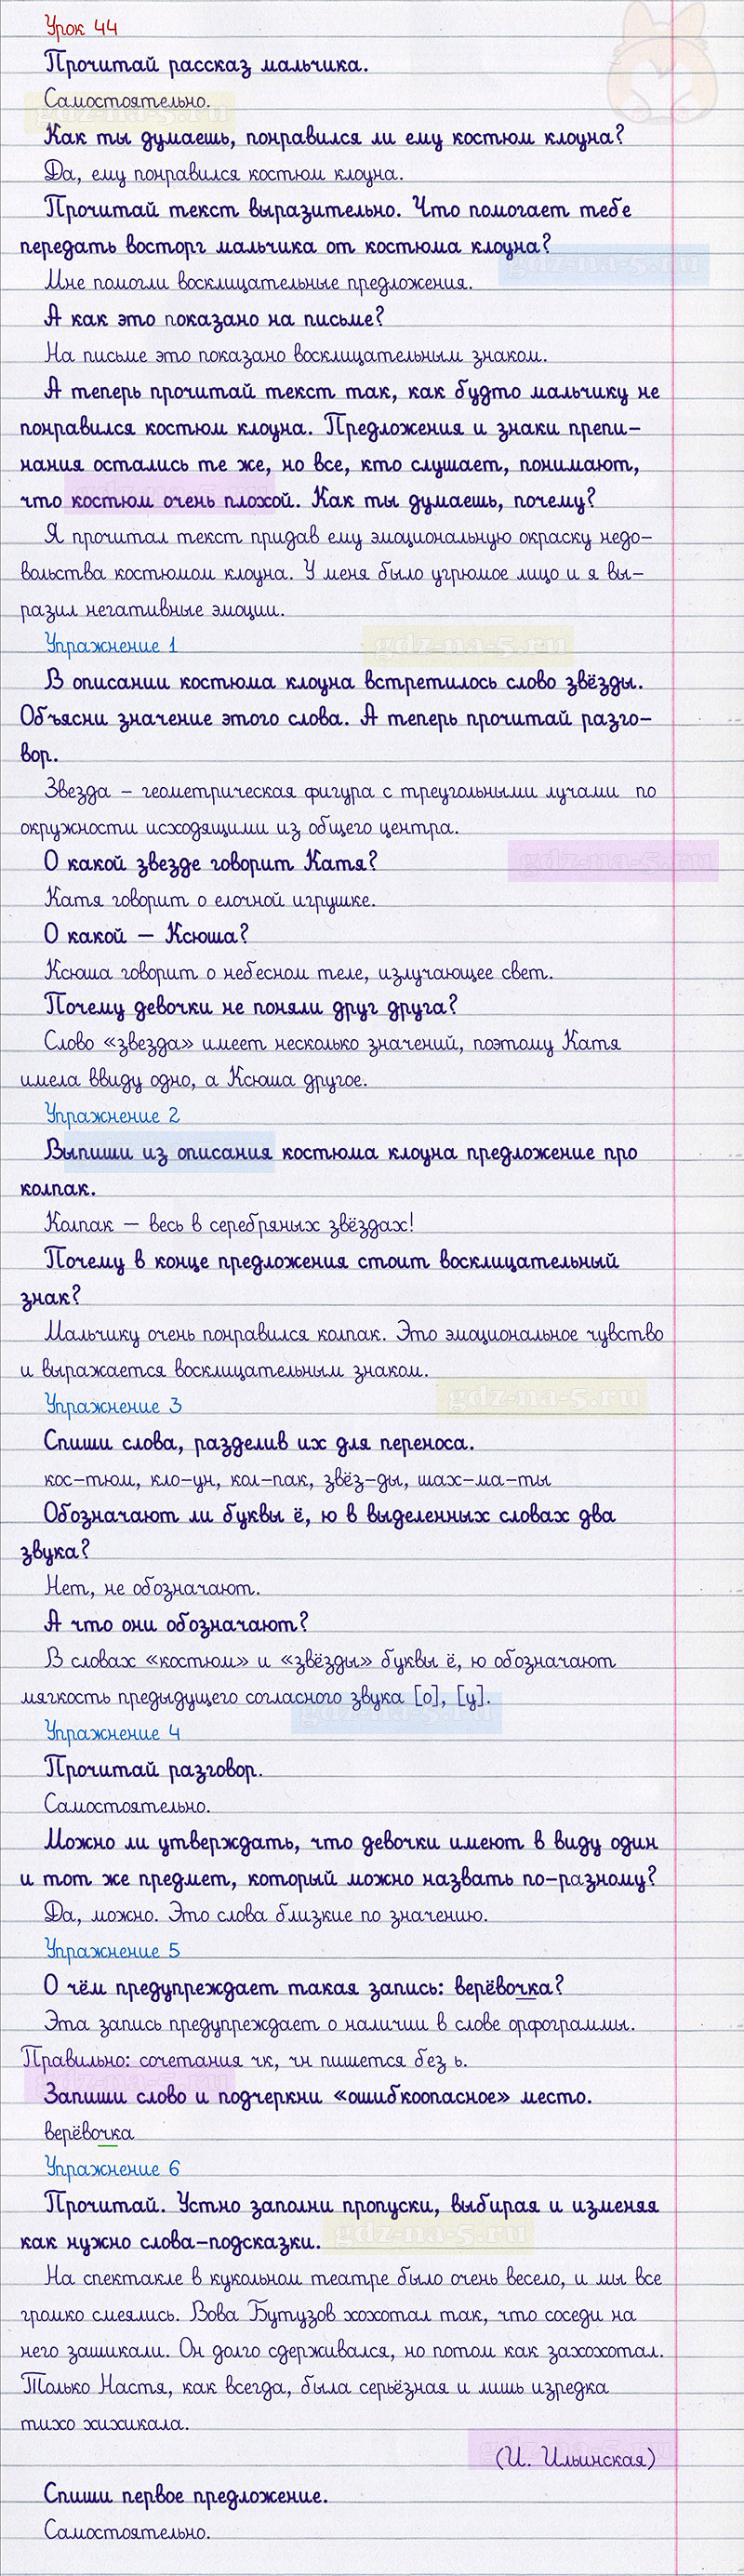 Урок 44
Прочитай рассказ мальчика.
Самостоятельно.
Как ты думаешь, понравился ли ему костюм клоуна?
Да, ему понравился костюм клоуна.
Прочитай текст выразительно. Что помогает тебе
передать восторг мальчика от костюма клоуна?
Мне помогли восклицательные предложения.
А как это показано на письме?
На письме это показано восклицательным знаком.
А теперь прочитай текст так, как будто мальчику не
понравился костюм клоуна. Предложения и знаки препи-
нания остались те же, но все, кто слушает, понимают,
что костюм очень плохой. Как ты думаешь, почему?
Я прочитал текст придав ему эмоциональную окраску недо-
вольства костюмом клоуна. У меня было угрюмое лицо и я вы-
разил негативные эмоции.
Упражнение 1
В описании костюма клоуна встретилось слово звёзды.
Объясни значение этого слова. А теперь прочитай разго-
вор.
Звезда – геометрическая фигура с треугольными лучами по
окружности исходящими из общего центра.
О какой звезде говорит Катя?
Катя говорит о елочной игрушке.
О какой – Ксюша?
Ксюша говорит о небесном теле, излучающее свет.
Почему девочки не поняли друг друга?
Слово «звезда» имеет несколько значений, поэтому Катя
имела ввиду одно, а Ксюша другое.
Упражнение 2
Выпиши из описания костюма клоуна предложение про
колпак.
Колпак – весь в серебряных звёздах!
Почему в конце предложения стоит восклицательный
знак?
Мальчику очень понравился колпак. Это эмоциональное чувство
и выражается восклицательным знаком.
Упражнение 3
Спиши слова, разделив их для переноса.
кос-тюм, кло-ун, кол-пак, звёз-ды, шах-ма-ты
Обозначают ли буквы ё, ю в выделенных словах два
звука?
Нет, не обозначают.
А что они обозначают?
В словах «костюм» и «звёзды» буквы ё, ю обозначают
мягкость предыдущего согласного звука [о], [у].
Упражнение 4
Прочитай разговор.
Самостоятельно.
Можно ли утверждать, что девочки имеют в виду один
и тот же предмет, который можно назвать по-разному?
Да, можно. Это слова близкие по значению.
Упражнение 5
О чём предупреждает такая запись: верёвочка?
Эта запись предупреждает о наличии в слове орфограммы.
Правильно: сочетания чк, чн пишется без ь.
Запиши слово и подчеркни «ошибкоопасное» место.
верёвочка
Упражнение 6
Прочитай. Устно заполни пропуски, выбирая и изменяя
как нужно слова-подсказки.
На спектакле в кукольном театре было очень весело, и мы все
громко смеялись. Вова Бутузов хохотал так, что соседи на
него зашикали. Он долго сдерживался, но потом как захохотал.
Только Настя, как всегда, была серьёзная и лишь изредка
тихо хихикала.
(И. Ильинская)
Спиши первое предложение.
Самостоятельно.
gdz-na-5.ru
gdz-na-5.ru
gdz-na-5.ru
gdz-na-5.ru
gdz-na-5.ru
gdz-na-5.ru
gdz-na-5.ru
gdz-na-5.ru
gdz-na-5.ru